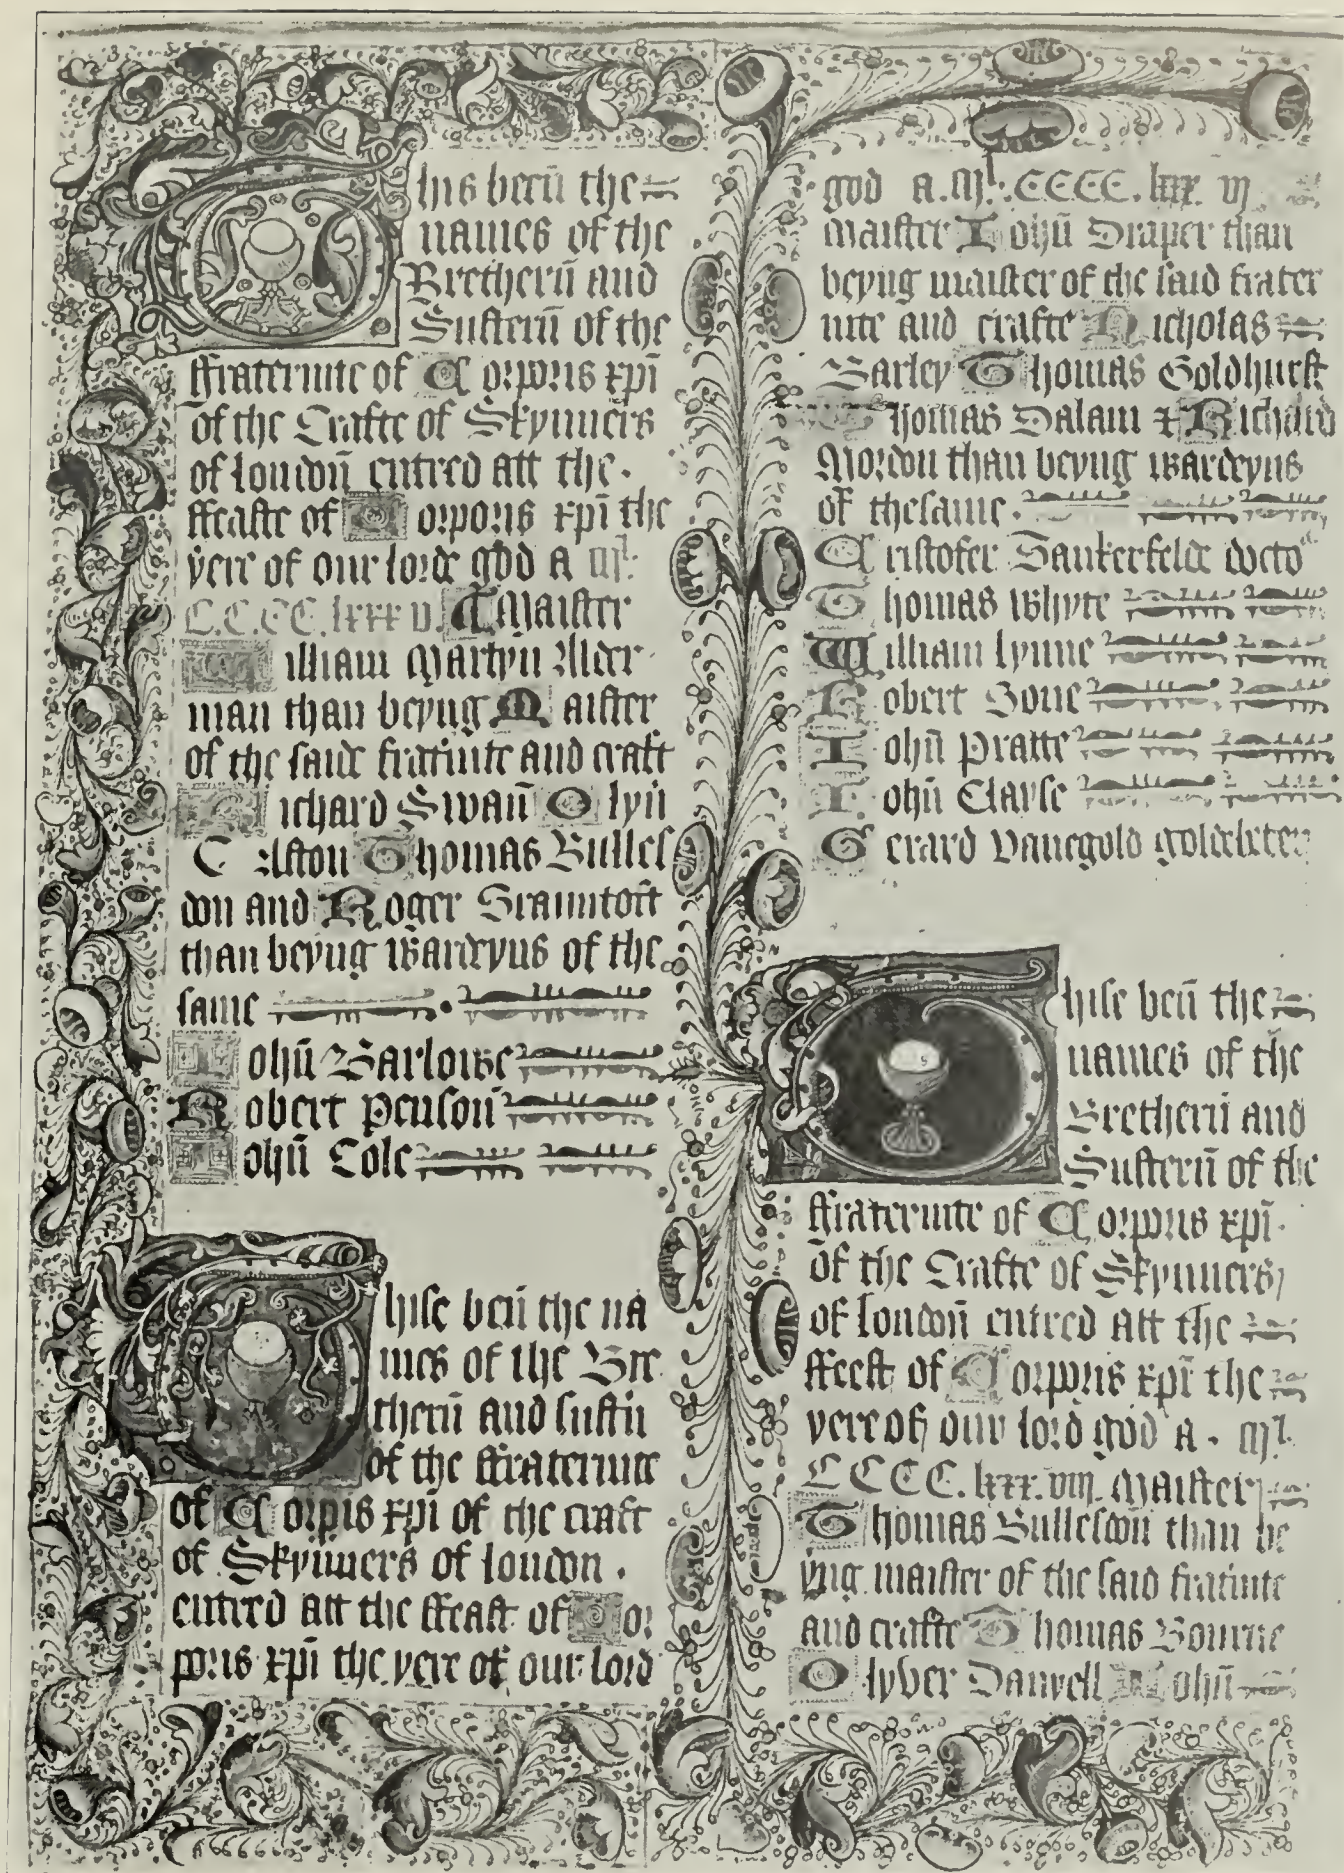 This beeñ the
names of the
Bretherñ and
Susterñ of the
ffraternite of Corporis xpi
of the Crafte of Skynners
of londoñ entred att the.
ffeaste of Corporis xpi the
yere of our lorde god a Ml
CCCC. lxxx v. Maister
William Martyn Alder
man than beyng Maister
of the saide fratinite and craft
Richard Swañ Olyũ
Caston Thomas Bulles
don and Roger Grauntoft
than beyng Wardeyns of the
same
Iohñ Barlowe
Robert Pensoñ
Iohñ Cole
Thise beñ the na
mes of the Bre
therñ and sustñ
of the ffraternite
of Corpris xpi of the craft
of Skynners of london.
entred att the ffeast of Cor
poris xpi the yere of our lord
god a. Ml. CCCC. lxxx vj
Maister Iohñ Draper than
beyng maister of the said frater
nite and crafte Nicholas
Barley Thomas Goldhurst
Thomas Dalam & Richard
Mordon than beyng Wardeyns
of thesame.
Cristofer Sankerfelde docto
Thomas Whyte
William lynne
Robert Bone
Iohñ Pratte
Iohñ Clayse
Gerard Vanegold goldebeter
Thise beñ the
names of the
Bretherñ and
Susterñ of the
ffraternite of Corporis xpi.
of the Crafte of Skynners
of londoñ entred att the
ffeest of Corporis xpi the
yere of our lord god a. Ml.
CCCC. lxxx. viij. Maister
Thomas Bullesdon than be
yng maister of the said fratinite
and crafte Thomas Bourne
Olyver Danyell Iohñ